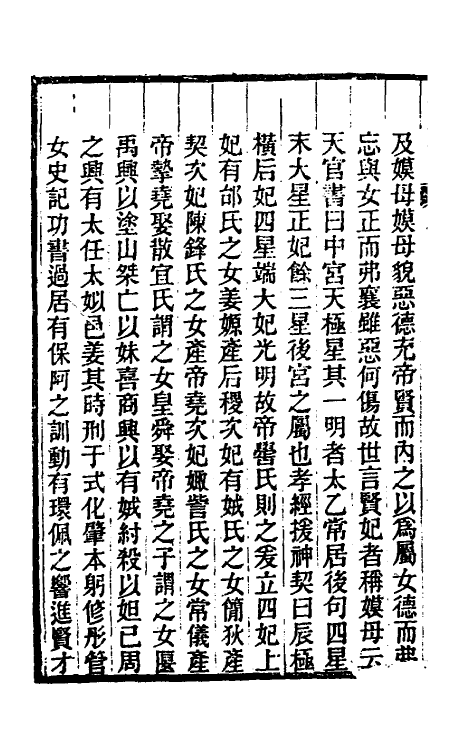 及嫫母嫫母貌惡德充帝賢而內之以爲屬女德而弗
忘與女正而弗襄雖惡何傷故世言賢妃者稱嫫母云
天官書曰中宮天極星其一明者太乙常居後句四星
末大星正妃餘三星後宮之屬也孝經援神契曰辰極
橫后妃四星端大妃光明故帝嚳氏則之爰立四妃上
妃有邰氏之女姜嫄產后稷次妃有娀氏之女簡狄產
契次妃陳鋒氏之女產帝堯次妃娵訾氏之女常儀產
帝摯堯娶散宜氏謂之女皇舜娶帝堯之子謂之女匽
禹興以塗山桀亡以妹喜商興以有娀紂殺以妲己周
之興有太任太姒邑姜其時刑于式化肇本躬修彤管
女史記功書過居有保阿之訓動有環佩之響進賢才